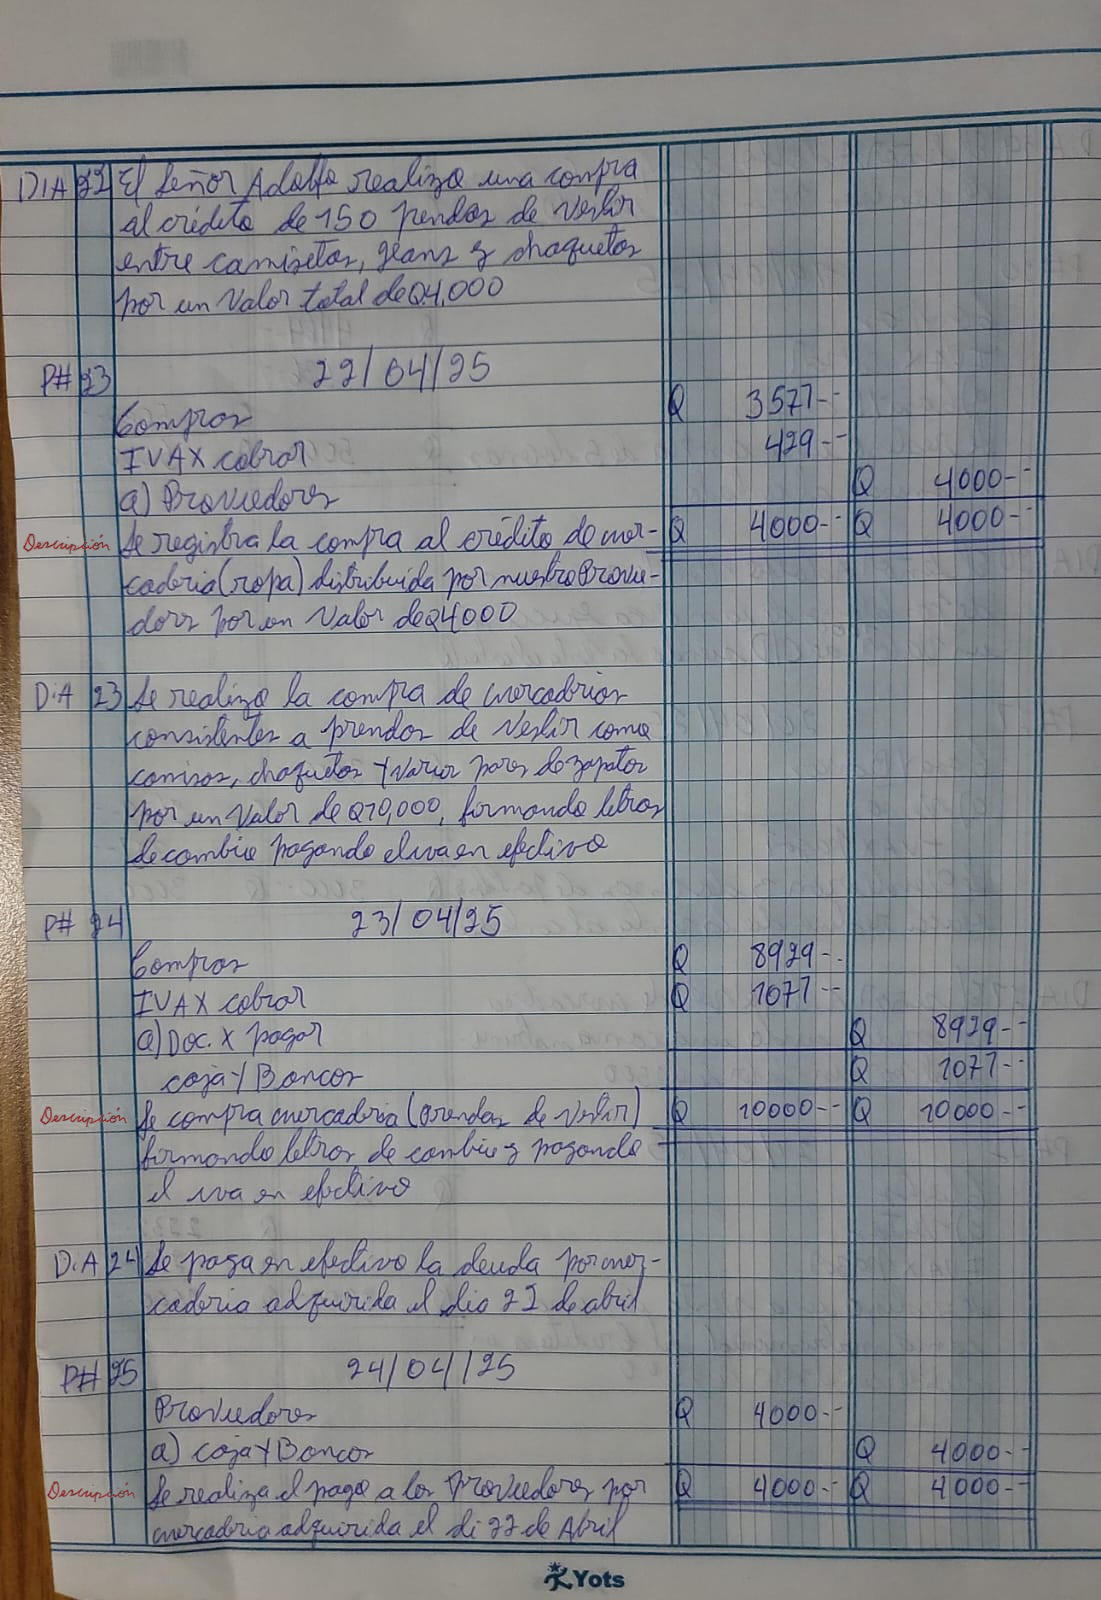 DIA 22 El Señor Adolfo realiza una compra
al crédito de 150 prendas de Vestir
entre camisetas, jeans y chaquetas
por un Valor total de Q4,000
P# 23 22/04/25
Compras Q 3571--
IVA X cobrar 429--
a) Proveedores Q 4000--
Descripción Se registra la compra al crédito de mer- Q 4000-- Q 4000--
caderia (ropa) distribuida por nuestro Provee-
dors por un Valor de Q4000
DiA 23 Se realiza la compra de mercadrias
consistentes a prendas de Vestir como
camisas, chaquetas y varios pares de zapatos
por un Valor de Q10,000, firmando letras
de cambio pagando el iva en efectivo
P# 24 23/04/25
Compras Q 8929--
IVA X cobrar Q 1071--
a) Doc. X pagar Q 8929--
caja y Bancos Q 1071--
Descripción Se compra mercaderia (prendas de Vestir) Q 10000-- Q 10000--
firmando letras de cambio y pagando
el iva en efectivo
DiA 24 Se paga en efectivo la deuda por mer-
caderia adquirida el dia 22 de abril
P# 25 24/04/25
Proveedores Q 4000--
a) caja y Bancos Q 4000--
Descripción Se realiza el pago a los Proveedores por Q 4000-- Q 4000--
mercadria adquirida el di 22 de Abril
Yots